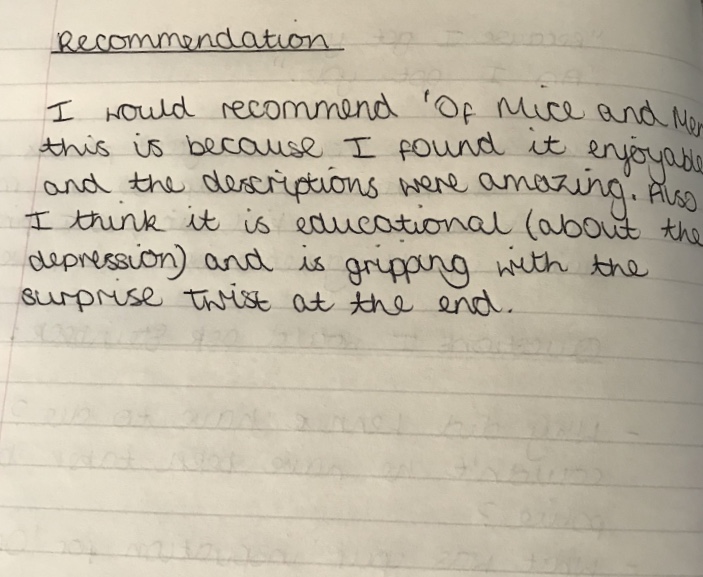 Recommendation
I would recommend 'Of Mice and Men
this is because I found it enjoyable
and the descriptions were amazing. Also
I think it is educational (about the
depression) and is gripping with the
surprise twist at the end.